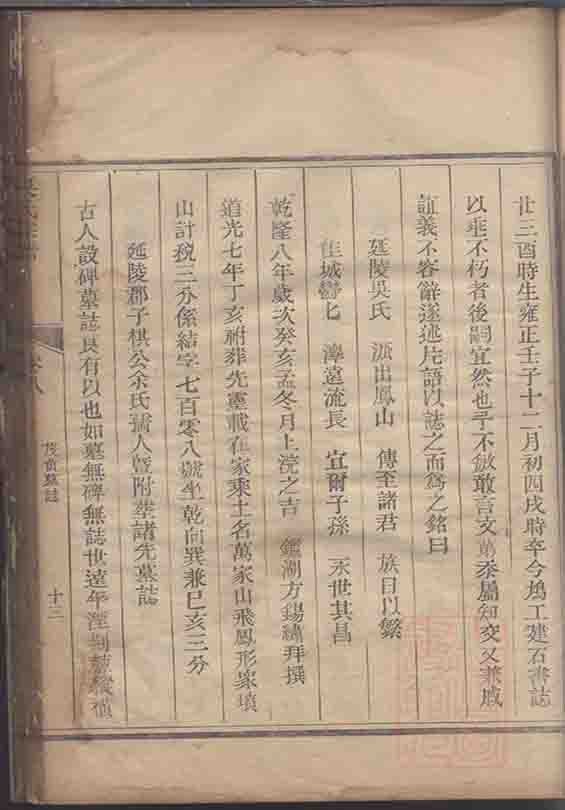 廿三酉時生雍正壬子十二月初四戌時卒今鳩工建石書誌
以垂不朽者後嗣宜然也予不敏敢言文第忝屬知交又兼戚
誼義不容辭遂述片語以誌之而為之銘曰
延陵吳氏 派出鳳山 傳至諸君 族目以繁
佳城鬱匕 澤遠流長 宜爾子孫 永世其昌
乾隆八年歲次癸亥孟冬月上浣之吉 鑑湖方錫繡拜撰
道光七年丁亥祔葬先靈載在家乘土名萬家山飛鳳形冢墳
山計稅三分係結字七百零八號坐乾向巽兼巳亥三分
延陵郡子棋公余氏孺人暨附塟諸先墓誌
古人設碑墓誌良有以也如墓無碑無誌世遠年湮荆蔥縱橫
卷八
茂黄墓誌
十三